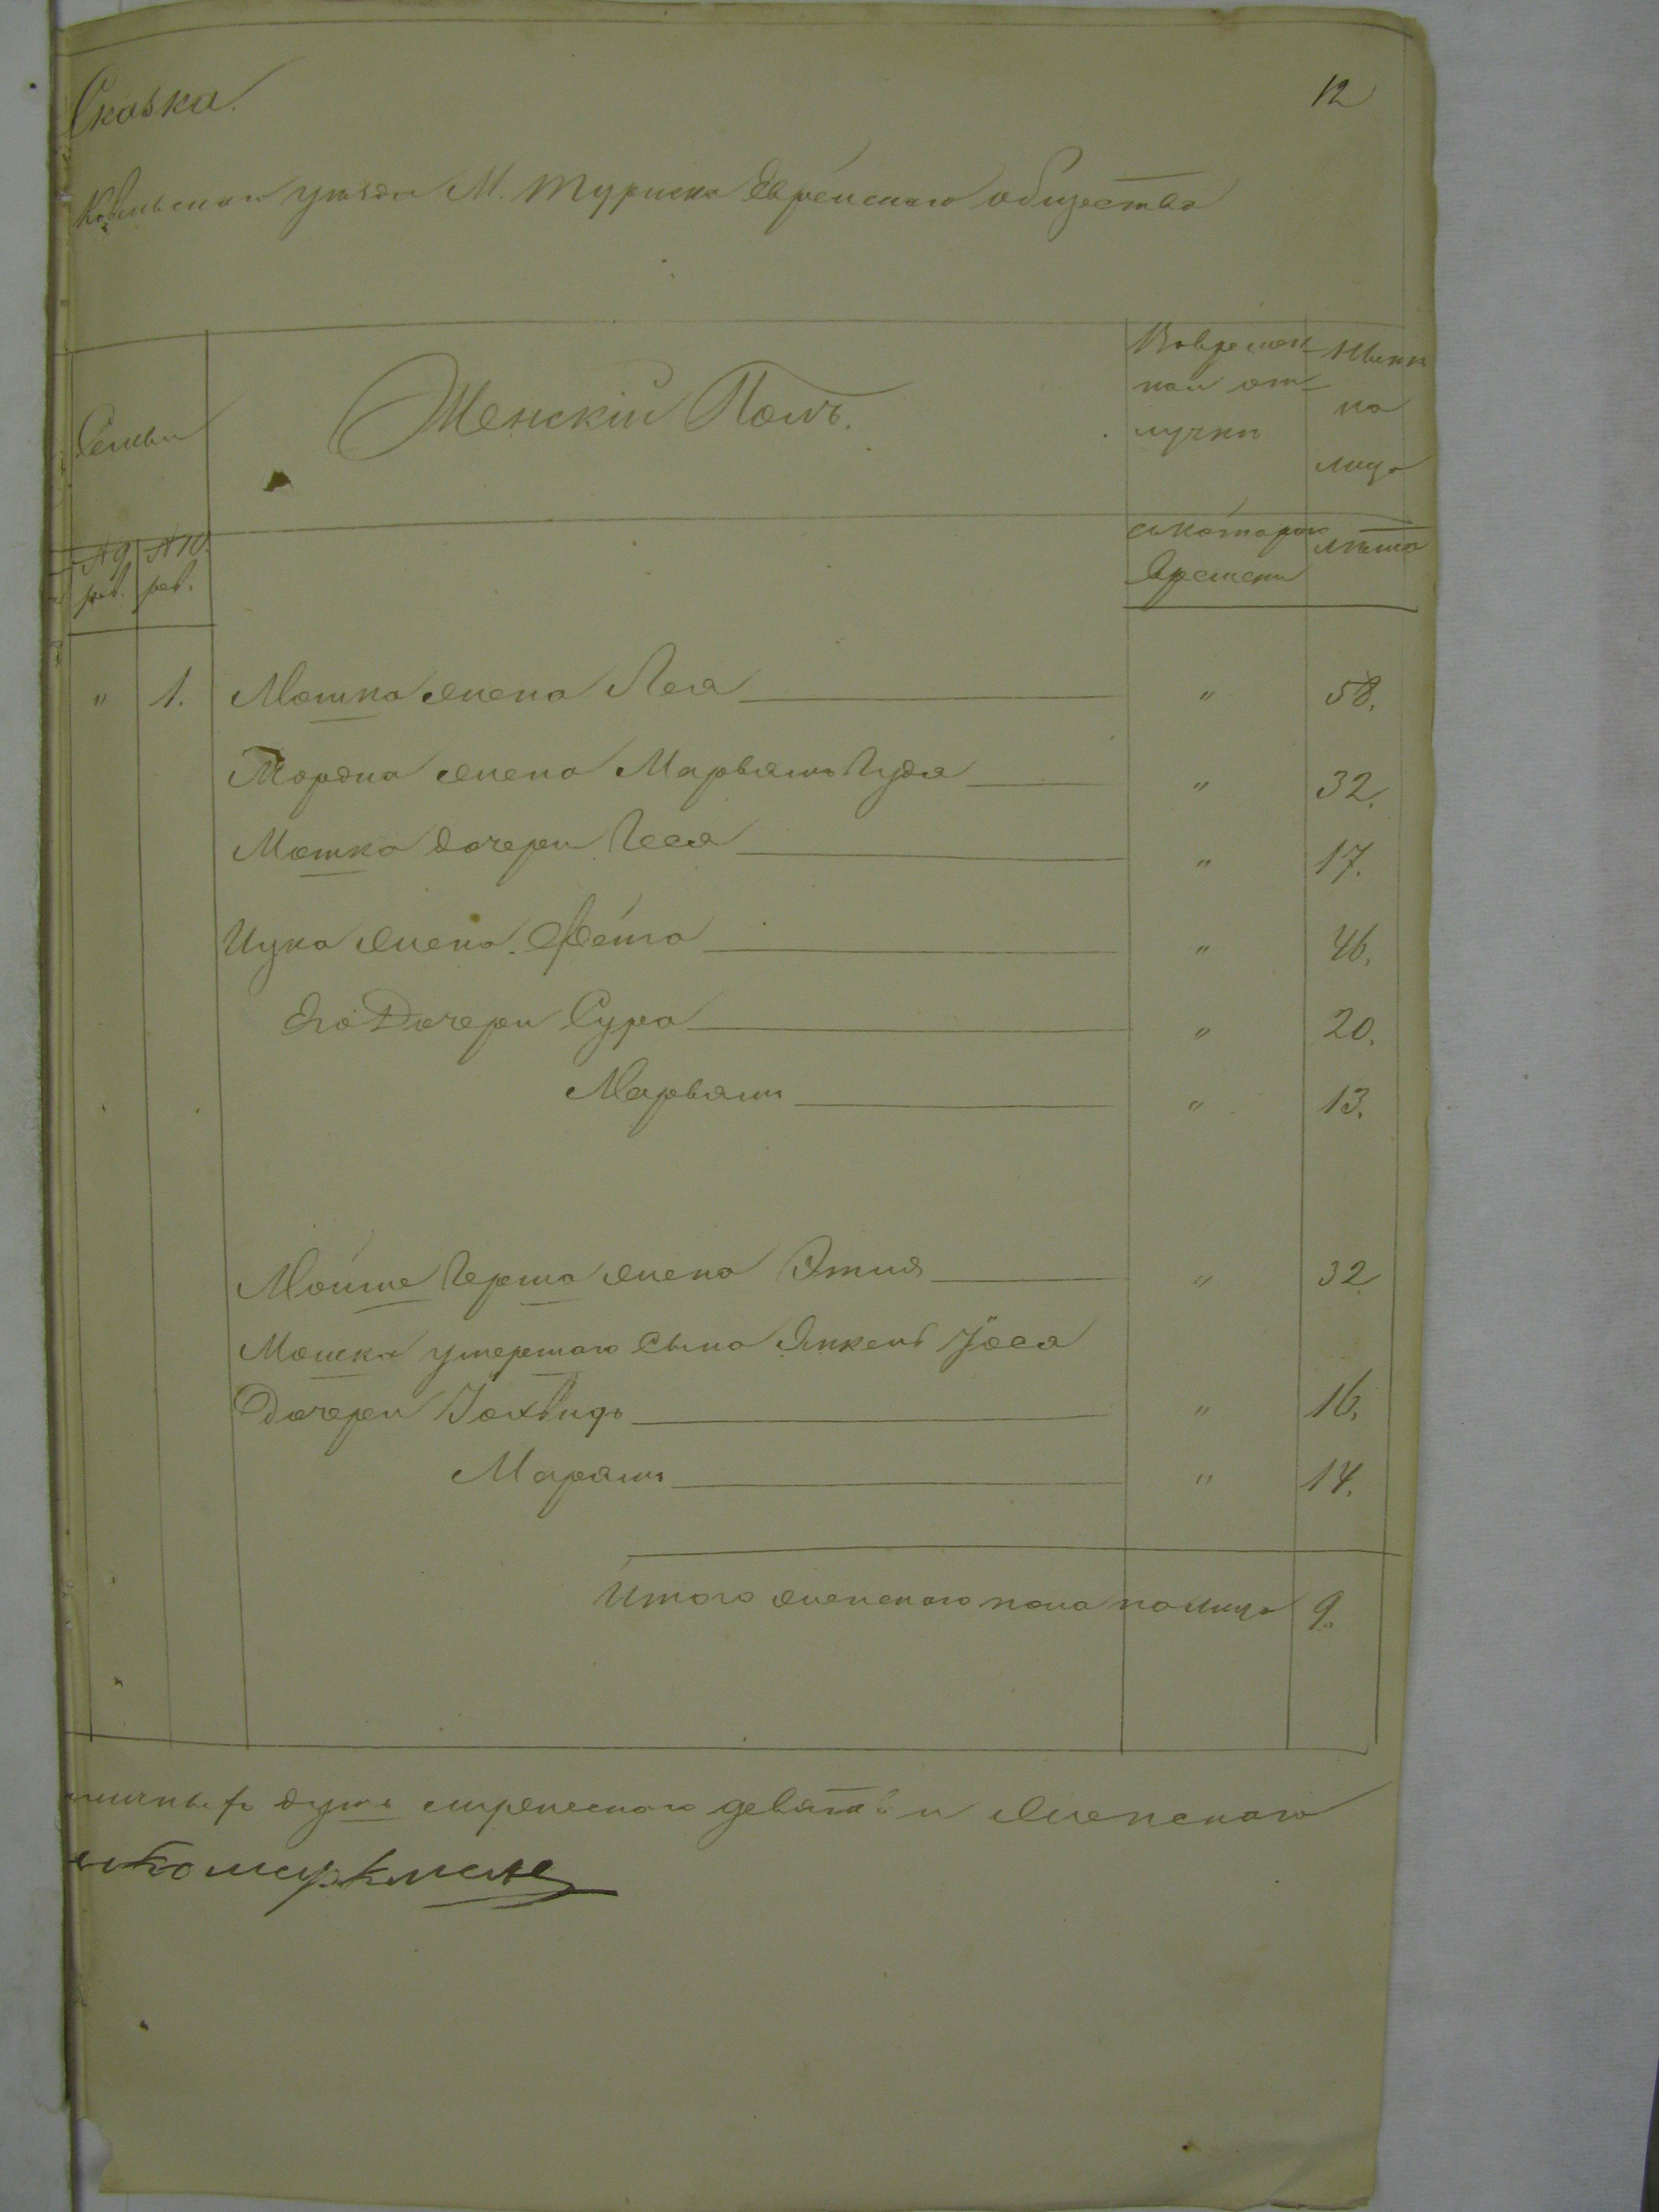 Сказка.
12
Ковельскаго уѣзда М. Турiиска Еврейскаго общества
Семьи
Женскій Полъ.
Во времен-
ной от-
лучкѣ
Нынѣ
на
лицо
№ 9 рев.
№ 10. рев.
съ котораго
времени
лѣта
" 1. Мошка жена Лея " 58.
Мордка жена Марьямъ Гудя " 32.
Мошка дочери Геся " 17.
Ицка жена Фейга " 46.
Его Дочери Сура " 20.
Марьямъ " 13.
Мойше Герша жена Этля " 32
Мошка умершаго сына Янкель Іося
Дочери Йохвидъ " 16.
Марямъ " 14.
Итого женскаго пола на лицо 9.
душъ мужескаго девять и женскаго